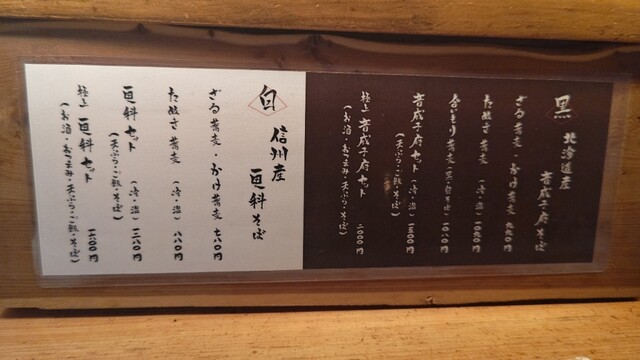 黒
北海道産
音威子府そば
ざる蕎麦・かけ蕎麦 九九〇円
たぬき蕎麦 (冷・温) 一〇九〇円
合いもり蕎麦 (黒白そば) 一〇八〇円
音威子府セット (冷・温) 一五〇〇円
(天ぷら・ご飯・そば)
極上 音威子府セット 二〇〇〇円
(お酒・おつまみ・天ぷら・ご飯・そば)
白
信州産
更科そば
ざる蕎麦・かけ蕎麦 七八〇円
たぬき蕎麦 (冷・温) 八八〇円
更科セット (冷・温) 一二八〇円
(天ぷら・ご飯・そば)
極上 更科セット
(お酒・おつまみ・天ぷら・ご飯・そば)